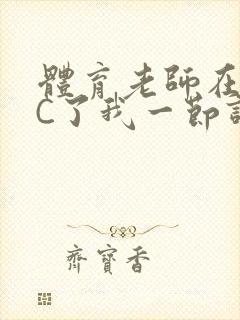 體育老師在
C了我一節
齊寶香